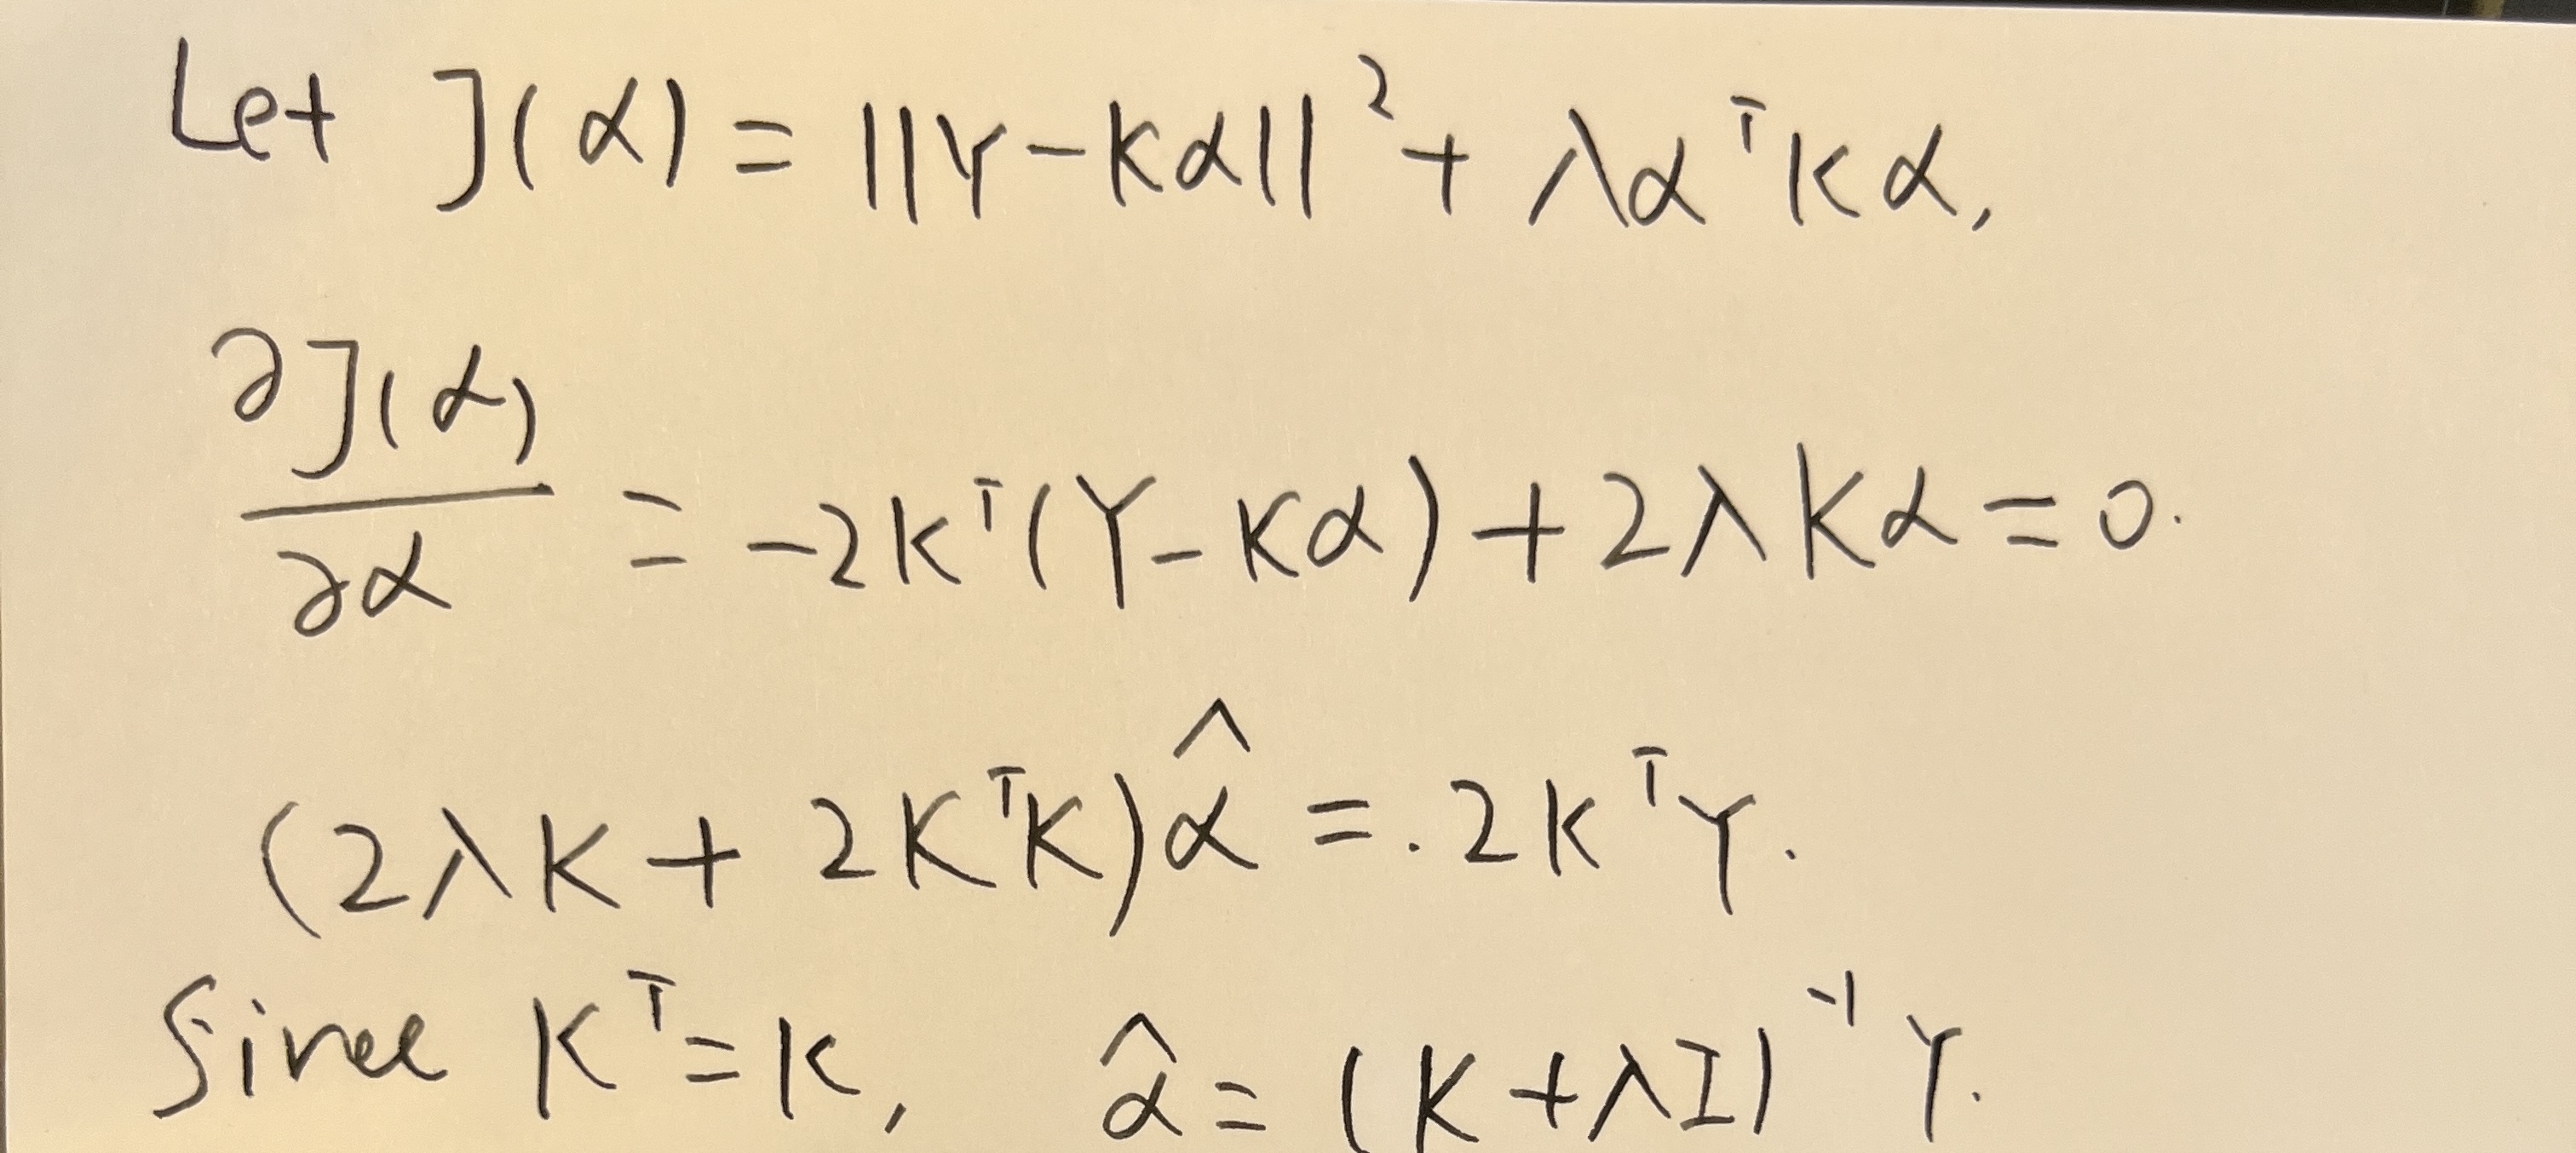 Let J(α) = ||Y - Kα||² + λαᵀKα,
∂J(α)/∂α = -2Kᵀ(Y - Kα) + 2λKα = 0.
(2λK + 2KᵀK)α̂ = . 2KᵀY.
Since Kᵀ = K, α̂ = (K + λI)⁻¹ Y.